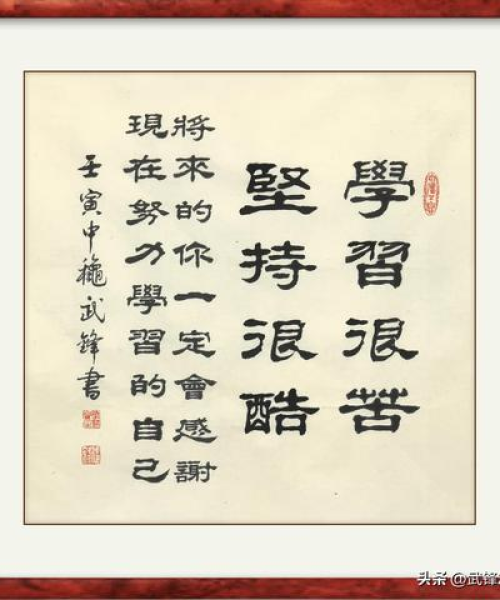 學習很苦
堅持很酷
將來的你一定會感謝
現在努力學習的自己
壬寅中龝武鋒書
头条 @武锋